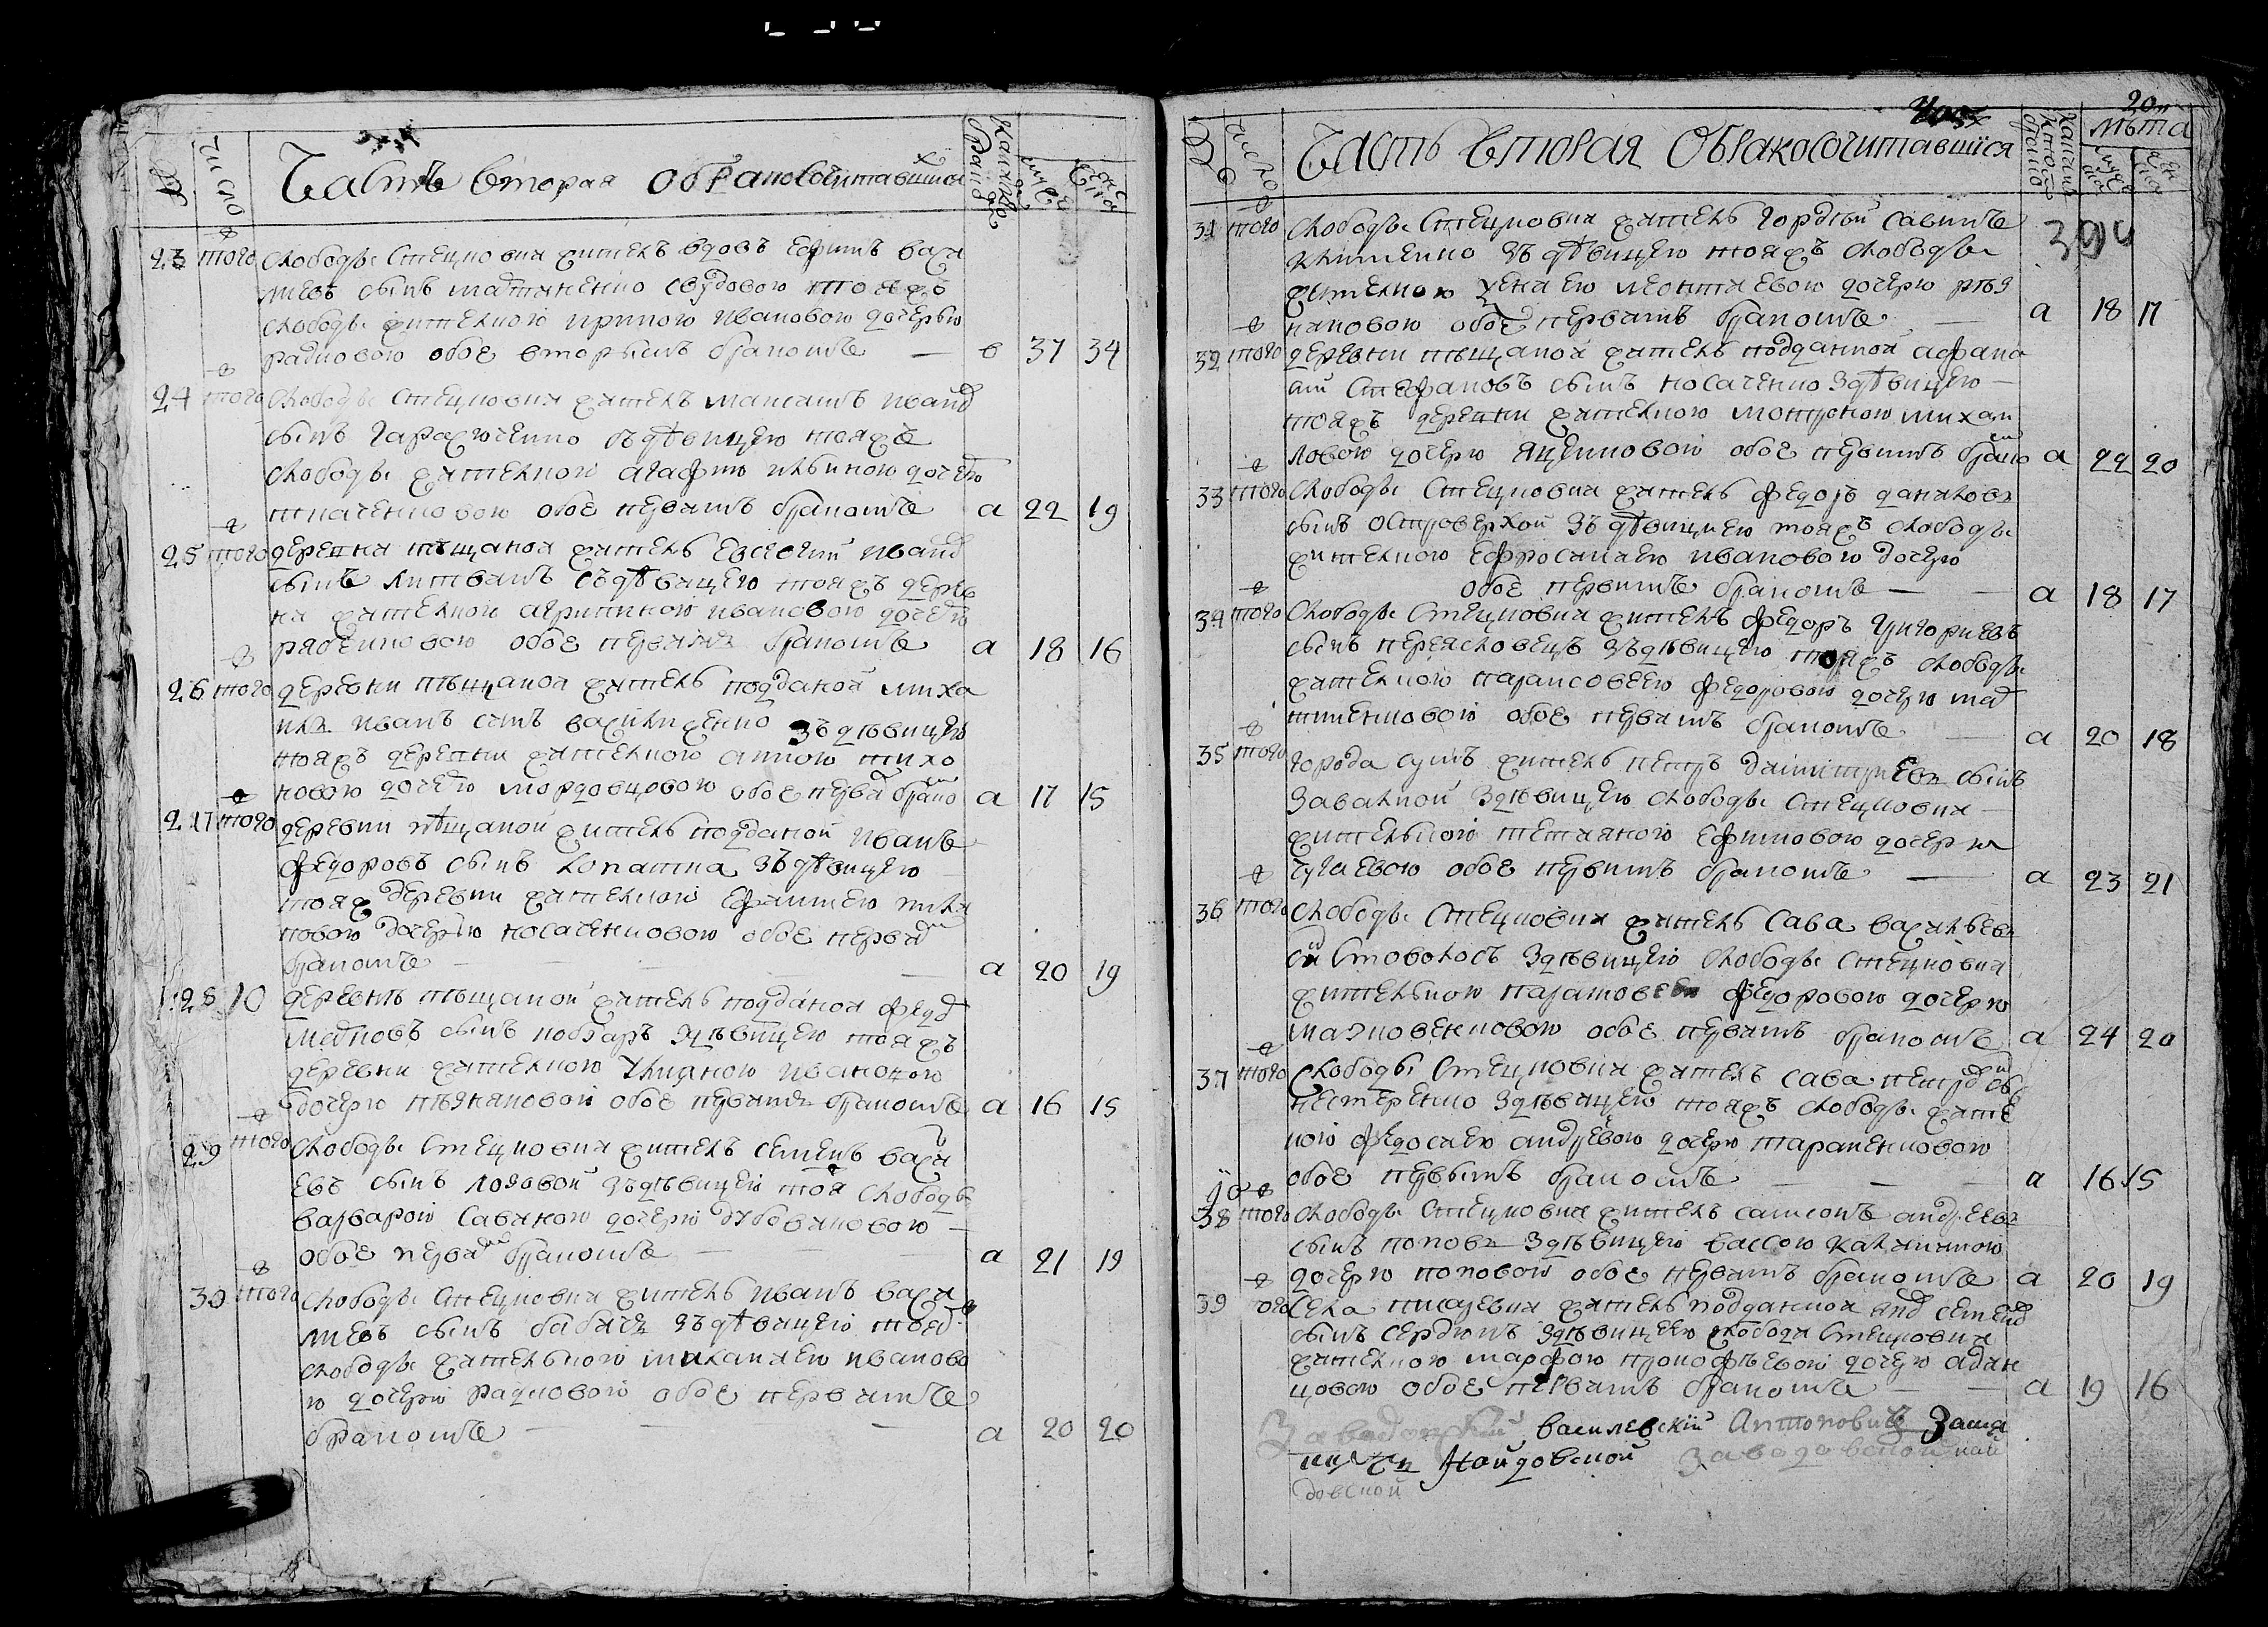 Часть вторая обракосочитавшихся
№
число
23 того слободы Стецковки житель вдовъ Ефимъ васи
лиевъ сынъ съ вдовою тояжъ
слободы жителкою ириною ивановою дочерью
радковою обое вторымъ бракомъ — в 37 34
24 того слободы Стецковки житель максимъ иванов
сынъ съ девицею тояжъ
слободы жителкою агафию дочерю
ткаченковою обое первимъ бракомъ а 22 19
25 того деревни пещаной житель Евсевий иванов
сынъ литвинъ съ девицею тояжъ дерев
ни жителкою агрипиною ивановою дочерю
рябенковою обое первимъ бракомъ а 18 16
26 того деревни пещаной житель подданой миха
илъ иванъ синъ зъ девицею
тояжъ деревни жителкою анною тихо
новою дочерю мордовцовою обое первим браком а 17 15
27 того деревни пещаной житель подданой иванъ
федоровъ сынъ лопатка зъ девицею
тояж деревни жителкою Ефимиею
новою дочерью носаченковою обое первим
бракомъ а 20 19
28 10 деревнѣ пещаной житель подданой федор
марковъ сынъ кобзаръ здевицею тояжъ
деревни жителкою улияною ивановою
дочерю обое первимъ бракомъ а 16 15
29 того слободы Стецковки житель семенъ васил
евъ сынъ лозовой зъдевицею тоя слободы
варварою савиною дочерю
обое первим бракомъ а 21 19
30 того слободы Стецковки житель иванъ васи
лиевъ сынъ бабичъ зъдевицею тояж
слободы жителкою михайлею иваново
ю дочерю радковою обое первимъ
бракомъ — а 20 20
20
Часть вторая Обракосочитавшихся
№
число
лѣта
394
31 того слободы Стецковки житель гордѣй савинъ
клименко зъ девицею тояжъ слободы
жителкою леонтиевою дочерю
обое первимъ бракомъ — а 18 17
32 того деревни пещаной житель подданой афана
сий Стефановъ сынъ носаченко здевицею —
тояжъ деревни жителкою мотроною михаи
ловою дочерю яценковою обое первимъ браком а 22 20
33 того слободы Стецковки житель федоръ даниловъ
сынъ островерхой зъ девицею тояжъ слободы
жителкою Ефросиниею ивановою дочерю
обое первимъ бракомъ — а 18 17
34 того слободы Стецковки житель федоръ григориевъ
сынъ переясловецъ зъдевицею тояжъ слободы
жителкою парасковеею федоровою дочерю
обое первимъ бракомъ — а 20 18
35 того города сумъ житель петръ димитриевъ сынъ
завалной здевицею слободы Стецковки
жителкою тетяною Ефимовою дочерю
чугаевою обое первимъ бракомъ — а 23 21
36 того слободы Стецковки житель Сава васильевъ
сынъ стоволосъ здевицею слободы Стецковки
жителкою парасковею федоровою дочерю
обое первимъ бракомъ а 24 20
37 того слободы Стецковки житель сава петров сынъ
нестеренко здевицею тояжъ слободы жител
кою федосиею андреевою дочерю тараненковою
обое первымъ бракомъ — а 16 15
38 того слободы Стецковки житель самсонъ андреевъ
сынъ поповъ здевицею вассою
дочерю поповою обое первимъ бракомъ а 20 19
39 того села писаревки житель подданой семенов
сынъ сердюкъ здевицею слободи Стецковки
жителкою марфою прокофѣевою дочерю
цовою обое первимъ бракомъ — а 19 16
василевскій Антоновичъ
Найдовской Заводовской най
довской